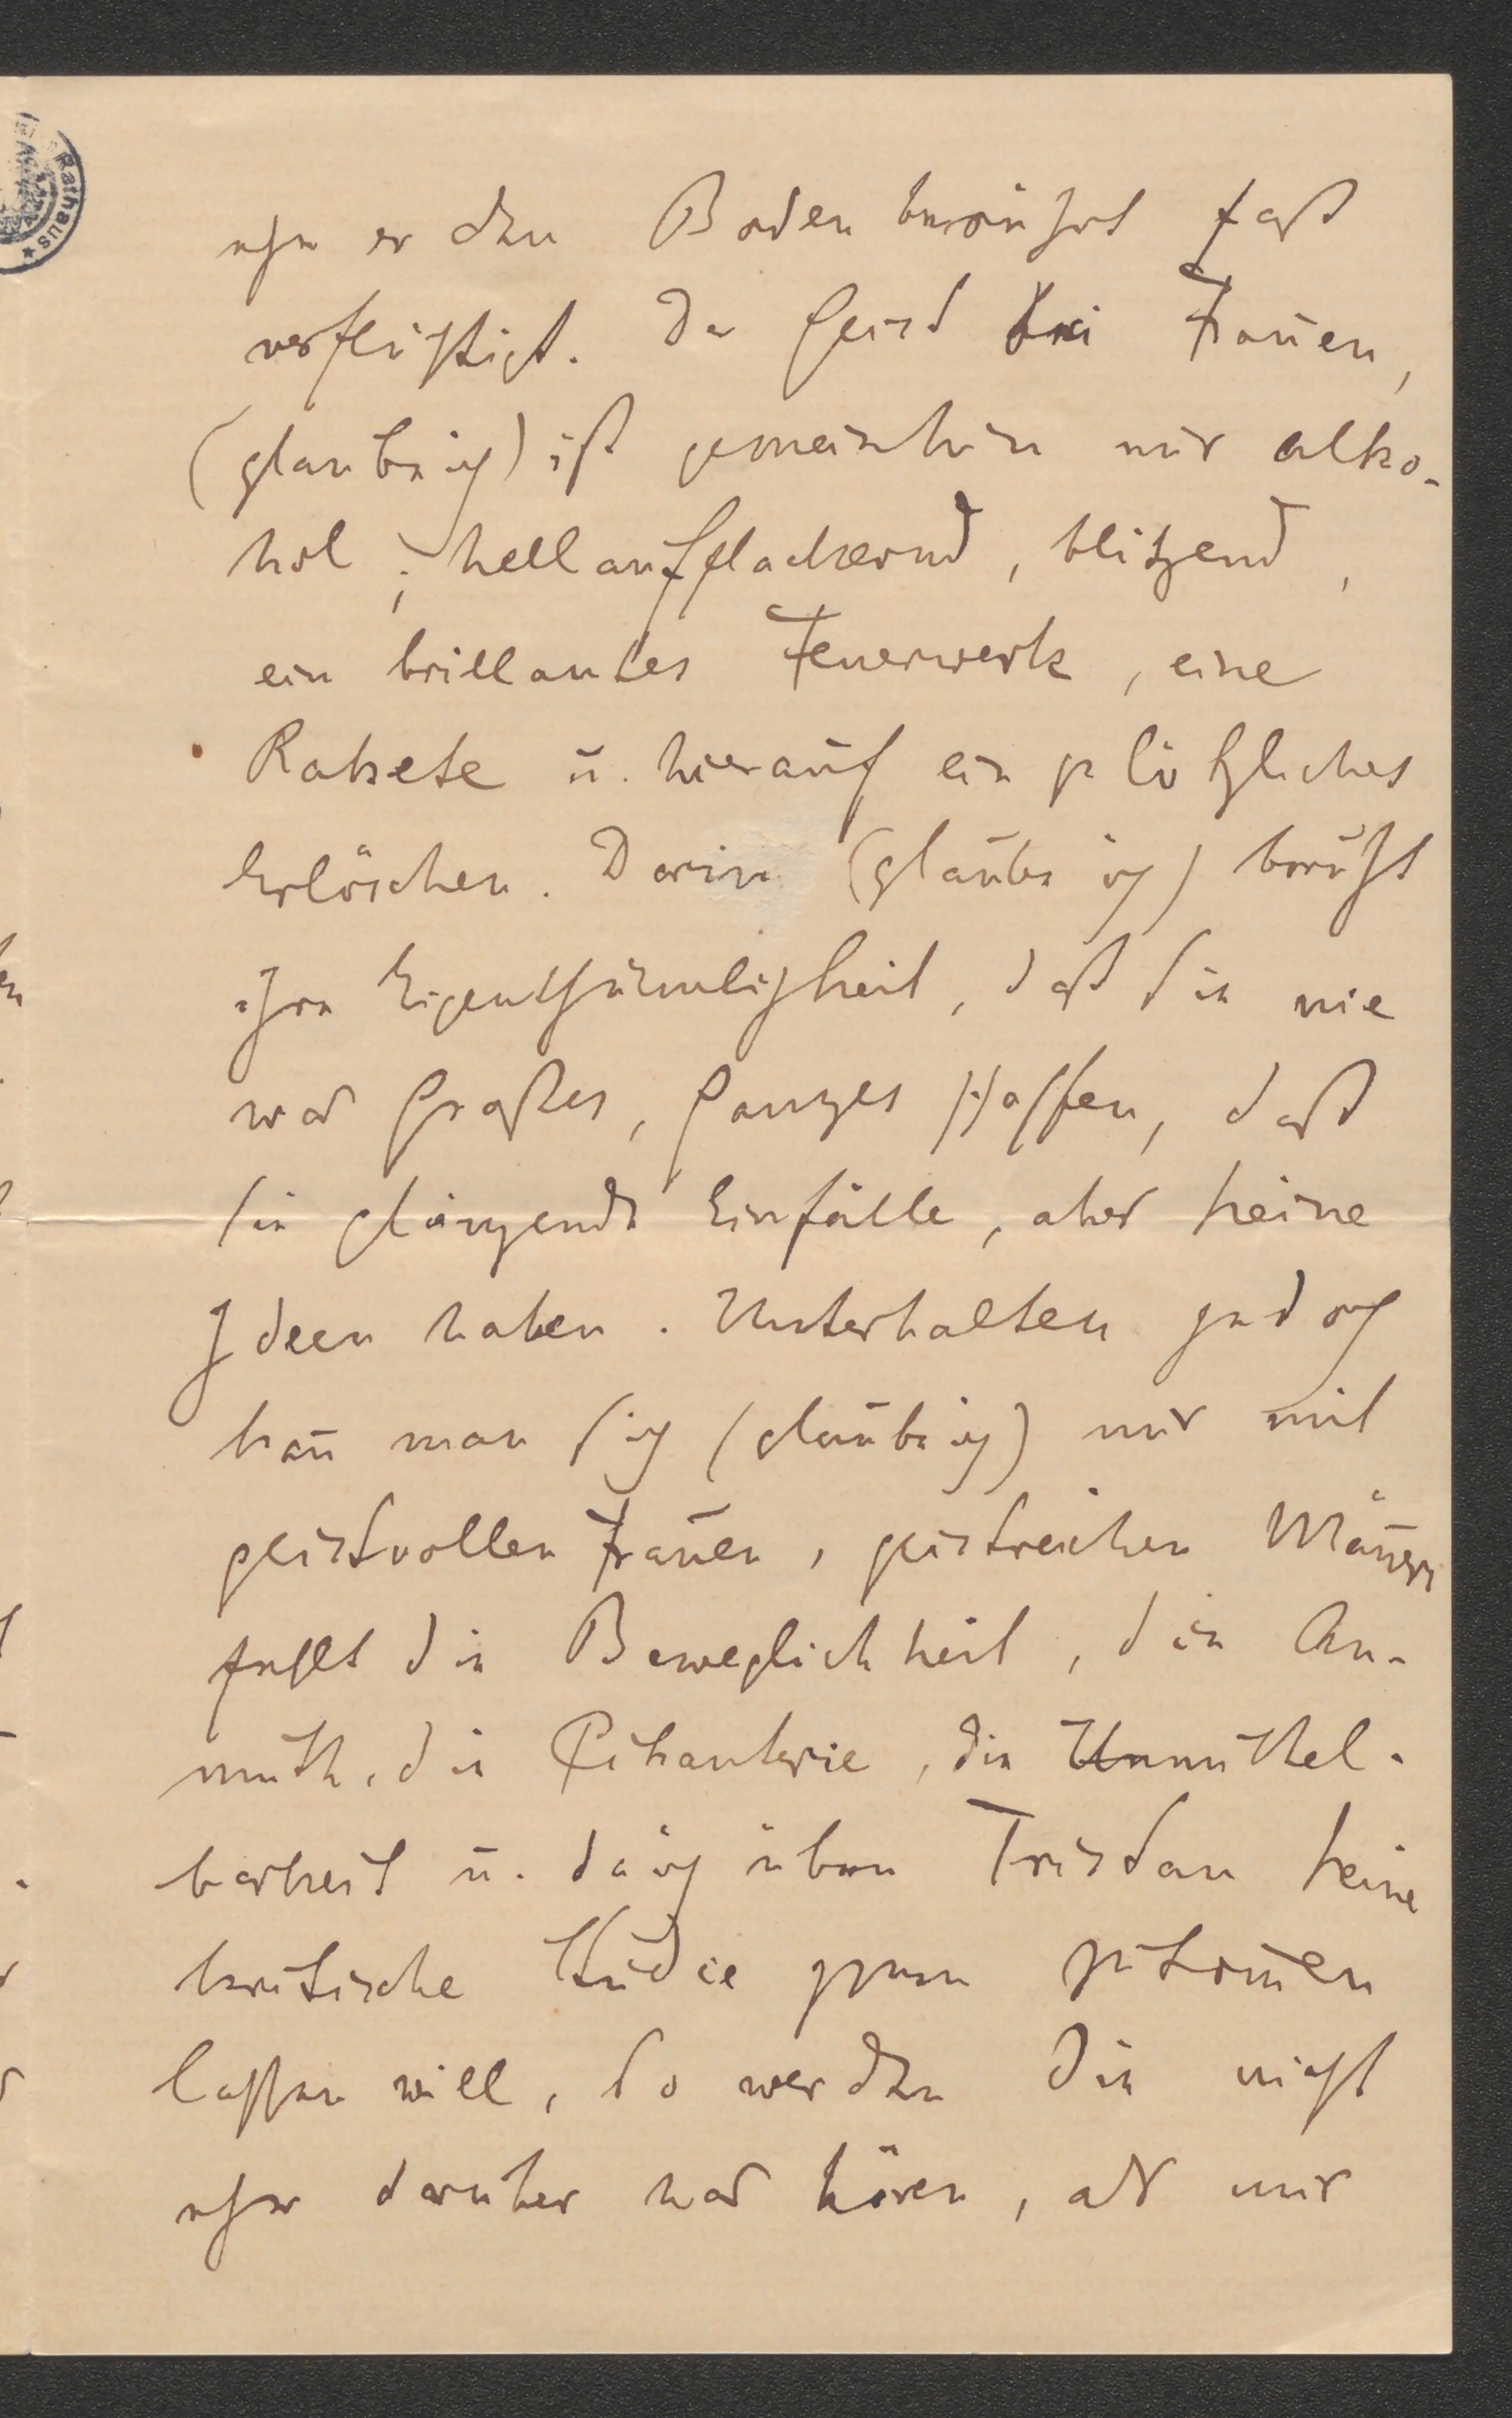 Rathaus
ehe er den Boden berührt fast
verflüchtigt. Der Geist bei Frauen,
(glaube ich) ist gemeinhin nur alko-
hol; hellaufflackernd, blitzend,
ein brillantes Feuerwerk, eine
Rakete ü. hierauf ein plötzliches
Erlöschen. Darin (glaube ich) beruht
ihre Eigenthümlichkeit, daß sie nie
was Großes, Ganzes schaffen, daß
sie glänzende Einfälle, aber keine
Ideen haben. Unterhalten jedoch
kan̄ man sich (glaube ich) nur mit
geistvollen Frauen, geistreichen Män̄ern
fehlt die Beweglichkeit, die An-
muth, die Pikanterie, die Unmittel-
barkeit u. da ich übern Tristan keine
kritische Studie gern zukom̄en
lassen will, so werden Sie nicht
eher darüber was hören, als mir